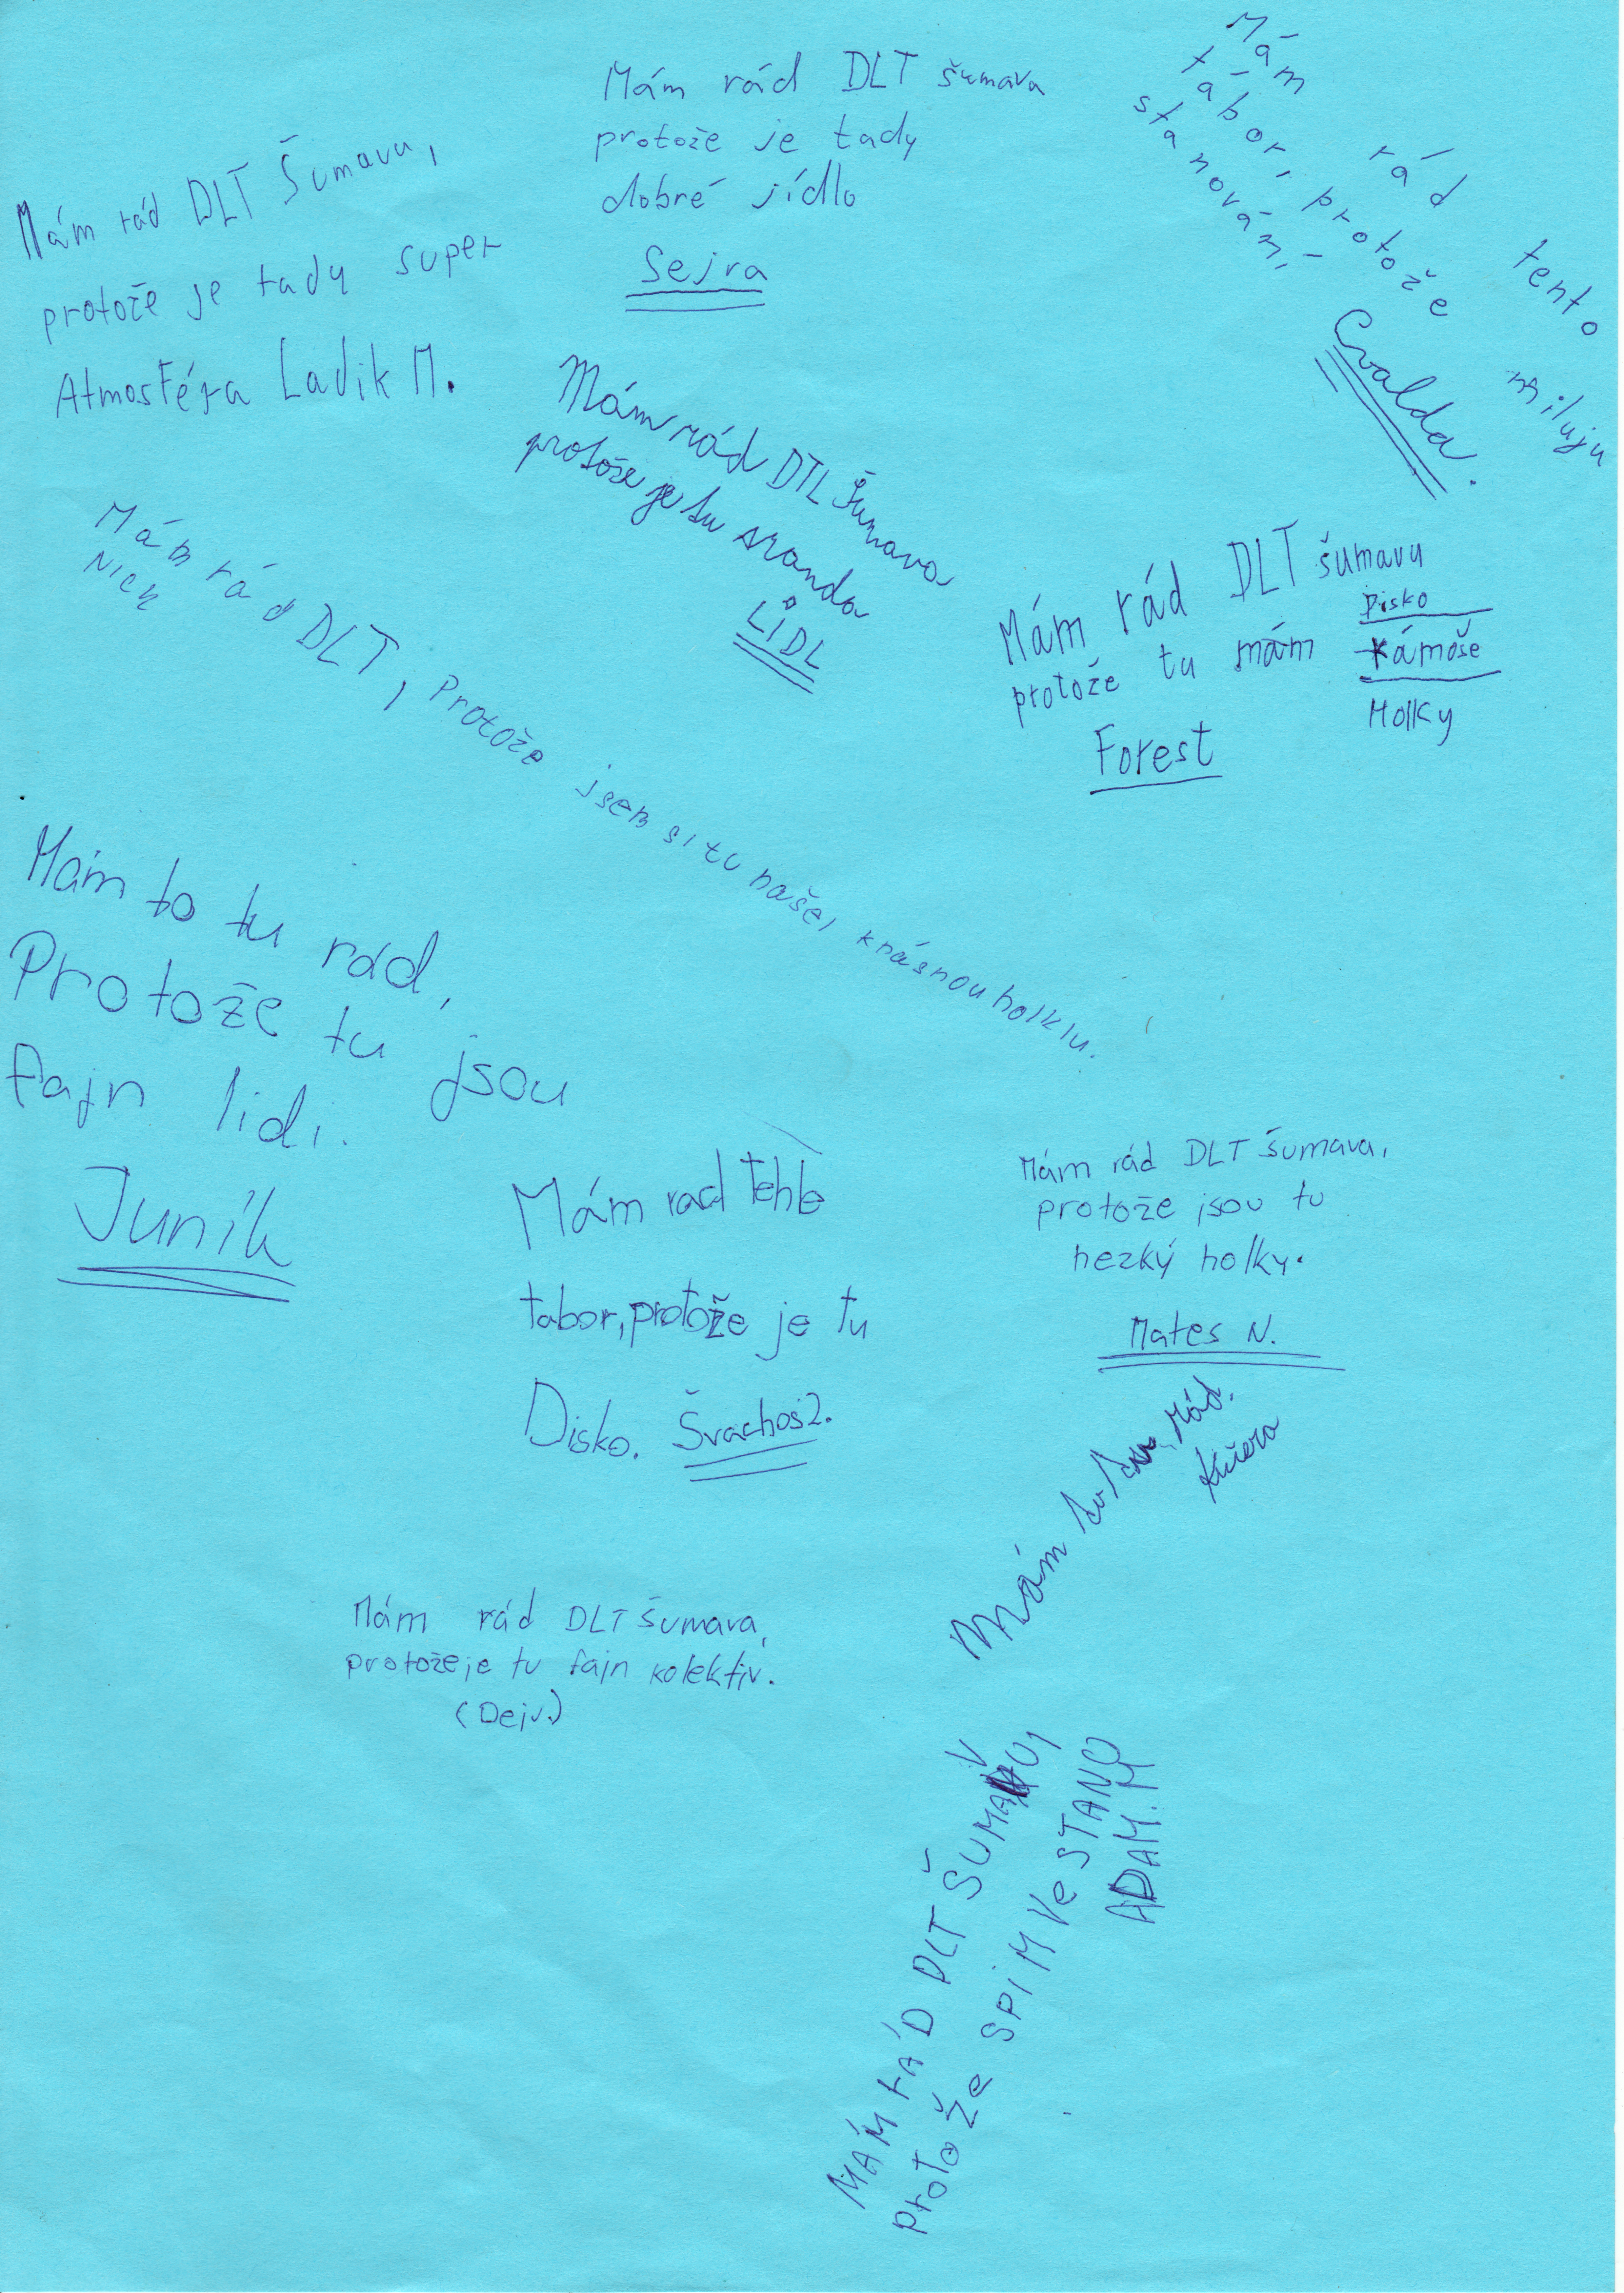 Mám rád DLT Šumavu,
protože je tady super
Atmosféra Ladik M.
Mám rád DLT šumava
protože je tady
dobré jídlo
Sejra
Mám rád tento
tábor, protože miluju
stanování
Cvalda.
Mám rád DTL Šumava
protože je tu sranda
LÍDL
Mám rád DLT, Protože jsem si tu našel krásnou holklu.
Nick
Mám rád DLT šumavu
protože tu mám
Disko
Kámoše
Holky
Forest
Mám to tu rád,
Protože tu jsou
fajn lidi.
Juník
Mám rad tehle
tabor, protože je tu
Disko. Švachoš2.
Mám rád DLT šumava,
protože jsou tu
hezký holky.
Mates N.
Mám to rád.
Kučera
Mám rád DLT šumava,
protože je tu fajn kolektiv.
(Dejv.)
MÁM RÁD DLT ŠUMAVU,
Protože SPíM Ve STANU
ADAM.M